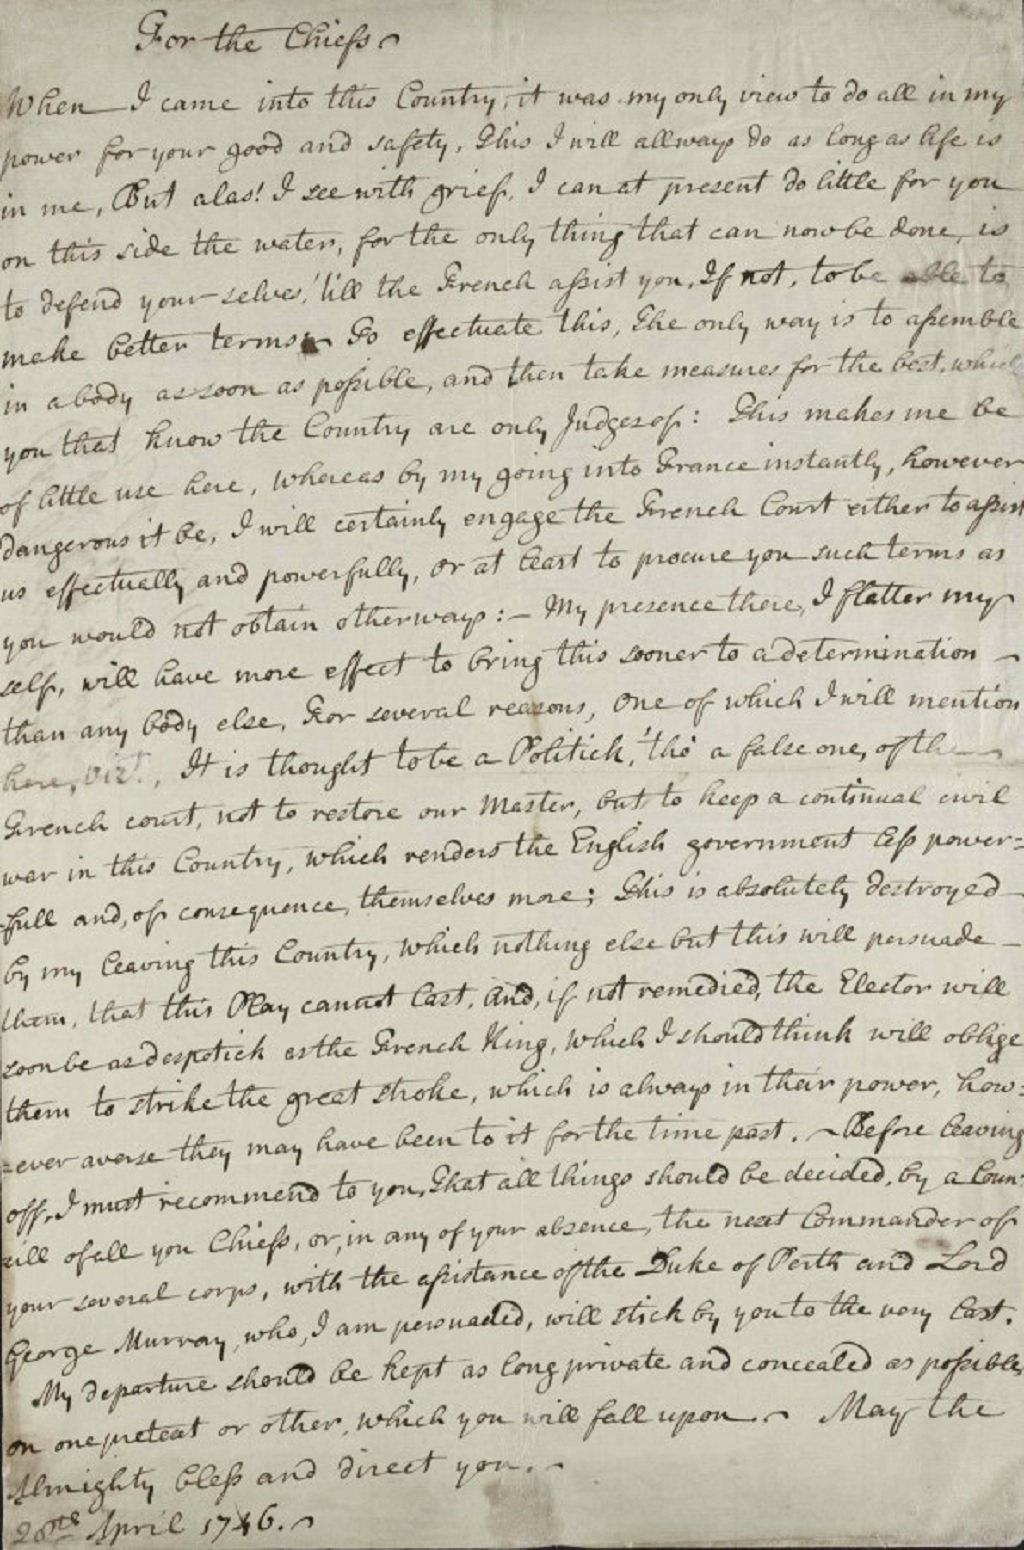 For the Chiefs
When I came into this Country, it was my only view to do all in my
power for your good and safety, This I will allways do as long as life is
in me, But alas! I see with grief, I can at present do little for you
on this side the water, for the only thing that can now be done, is
to defend your-selves, 'till the French assist you, If not, to be able to
make better terms. To effectuate this, The only way is to assemble
in a body as soon as possible, and then take measures for the best, which
you that know the Country are only Judges of: This makes me be
of little use here, whereas by my going into France instantly, however
dangerous it be, I will certainly engage the French Court either to assist
us effectually and powerfully, or at least to procure you such terms as
you would not obtain otherways:- My presence there, I flatter my
self, will have more effect to bring this sooner to a determination
than any body else, For several reasons, one of which I will mention
here, Vizt., It is thought to be a Politick, 'tho' a false one, of the
French court, not to restore our Master, but to keep a continual civil
war in this Country, which renders the English government less power=
-full and, of consequence, themselves more; This is absolutely destroyed
by my leaving this Country, which nothing else but this will persuade
them, that this Play cannot last, And, if not remedied, the Elector will
soon be as despotick as the French King, which I should think will oblige
them to strike the great stroke, which is always in their power, how=
=ever averse they may have been to it for the time past. Before leaving
off, I must recommend to you, That all things should be decided, by a Coun-
cill of all you Chiefs, or, in any of your absence, the next Commander of
your several corps, with the assistance of the Duke of Perth and Lord
George Murray, who, I am persuaded, will stick by you to the very last.
My departure should be kept as long private and concealed as possible,
on one pretext or other, which you will fall upon. May the
Almighty bless and direct you.
April 1746.